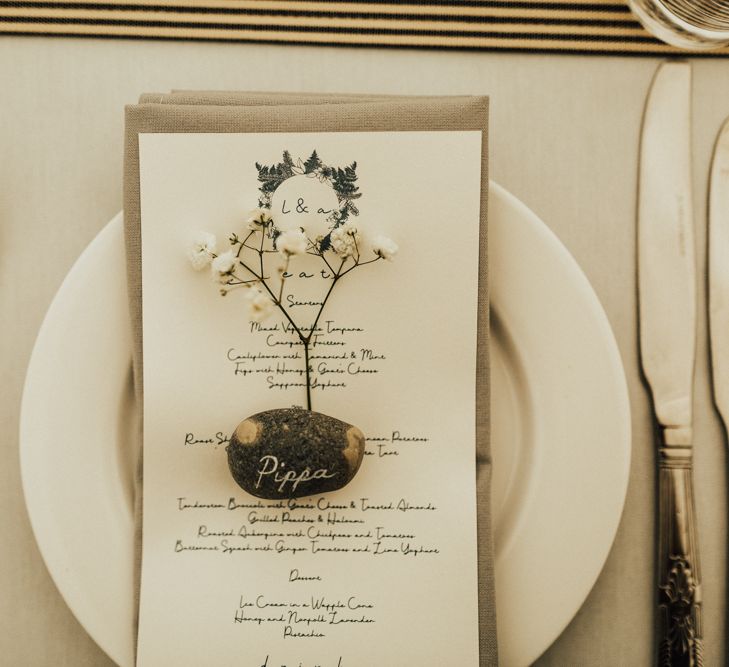 L & a
eat
Starters
Mixed Vegetable Tempura
Courgette Fritters
Cauliflower with Tamarind & Mint
Figs with Honey & Goat's Cheese
Saffron Yoghurt
Roast Potatoes
Tart
Pippa
Tenderstem Broccoli with Goat's Cheese & Toasted Almonds
Grilled Peaches & Haloumi
Roasted Aubergine with Chickpeas and Tomatoes
Butternut Squash with Ginger Tomatoes and Lime Yoghurt
Dessert
Ice Cream in a Waffle Cone
Honey and Norfolk Lavender
Pistachio